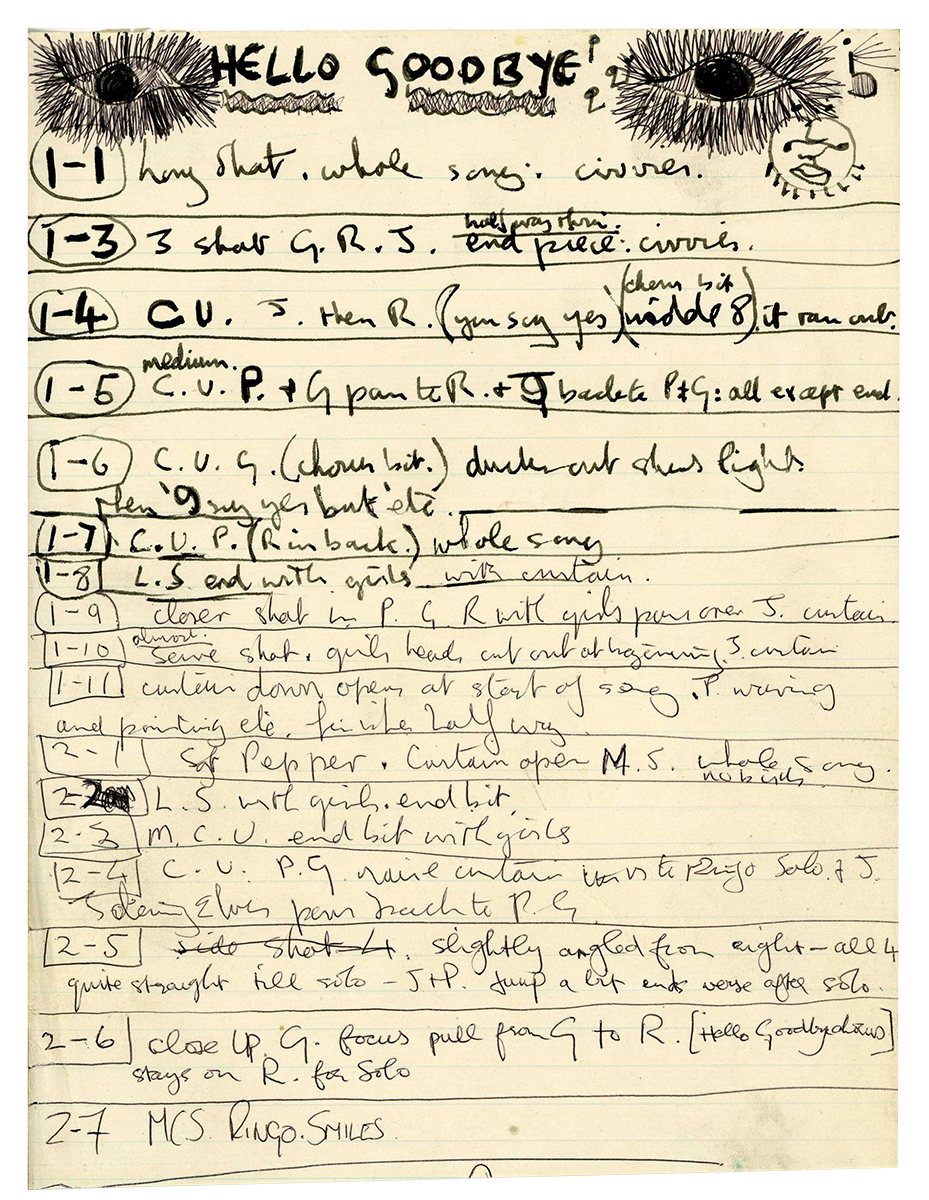 HELLO GOODBYE!
1-1 long shot. whole song. civvies.
halfway thru.
1-3 3 shot G. R. J. end piece: civvies.
(chorus bit)
1-4 C U. J. then R. (you say yes) middle 8) it ran out.
medium.
1-5 C.U. P. + G pan to R. + J back to P+G: all except end.
1-6 C.U. G. (chorus bit.) ducks out shows lights
then 'I say yes but' etc.
1-7 C.U. P. (R in back.) whole song
1-8 L.S end with girls with curtain.
1-9 closer shot in P. G. R with girls pans over J. curtain.
almost.
1-10 same shot. girls heads cut out at beginning. J. curtain
1-11 curtain down opens at start of song. P. waving
and pointing etc. finishes half way.
2-1 Sgt Pepper. Curtain open M.S. whole song.
no birds.
2-2 L.S. with girls. end bit
2-3 M.C.U. end bit with girls
2-4 C.U. P.G. raise curtain to Ringo Solo. & J.
pans back to P. G.
2-5 side shot 4. slightly angled from right - all 4
quite straight till solo - J+P. Jump a bit ends verse after solo.
2-6 close UP. G. focus pull from G to R. [Hello Goodbye chorus]
stays on R. for Solo
2-7 MCS. RINGO. SMILES.